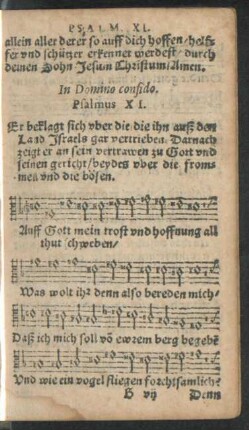 PSALM. XI.
allein aller derer so auff dich hoffen/ helf-
fer vnd schützer erkennet werdest/ durch
deinen Sohn Jesum Christum/ Amen.
In Domino confido.
Psalmus XI.
Er beklagt sich vber die die ihn auß dem
Land Israels gar vertrieben. Darnach
zeigt er an sein vertrawen zu Gott vnd
seinen gericht/ beydes vber die from-
men vnd die bösen.
Auff Gott mein trost vnd hoffnung all
thut schweben/
Was wolt ihr denn also bereden mich/
Daß ich mich soll võ ewrem berg begebẽ
Vnd wie ein vogel fliegen forchtsamlich?
G vij Denn